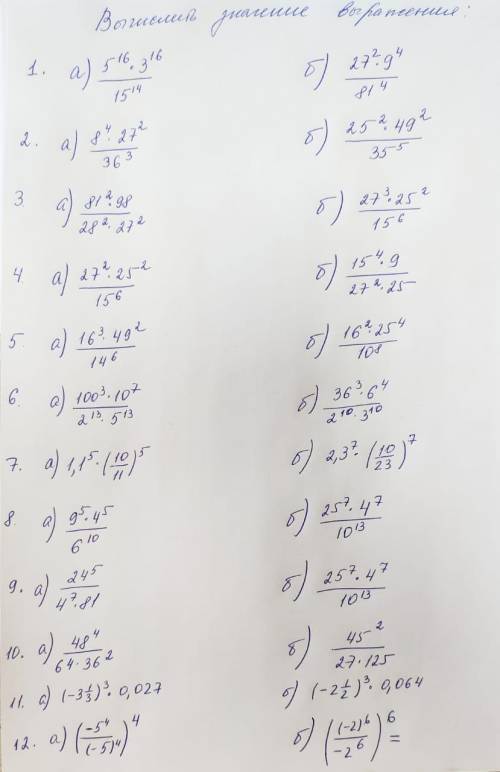 Вычислить значение выражения:
1. а) 5^16 · 3^16 / 15^14 б) 27^2 · 9^4 / 81^4
2. а) 8^4 · 27^2 / 36^3 б) 25^2 · 49^2 / 35^5
3. а) 81^2 · 98 / 28^2 · 27^2 б) 27^3 · 25^2 / 15^6
4. а) 27^2 · 25^2 / 15^6 б) 15^4 · 9 / 27^2 · 25
5. а) 16^3 · 49^2 / 14^6 б) 16^2 · 25^4 / 10^8
6. а) 100^3 · 10^7 / 2^13 · 5^13 б) 36^3 · 6^4 / 2^10 · 3^10
7. а) 1,1^5 · (10/11)^5 б) 2,3^7 · (10/23)^7
8. а) 9^5 · 4^5 / 6^10 б) 25^7 · 4^7 / 10^13
9. а) 24^5 / 4^7 · 81 б) 25^7 · 4^7 / 10^13
10. а) 48^4 / 64 · 36^2 б) 45^2 / 27 · 125
11. а) (-3 1/3)^3 · 0,027 б) (-2 1/2)^3 · 0,064
12. а) (-5^4 / (-5)^4)^4 б) ((-2)^6 / -2^6)^6 =